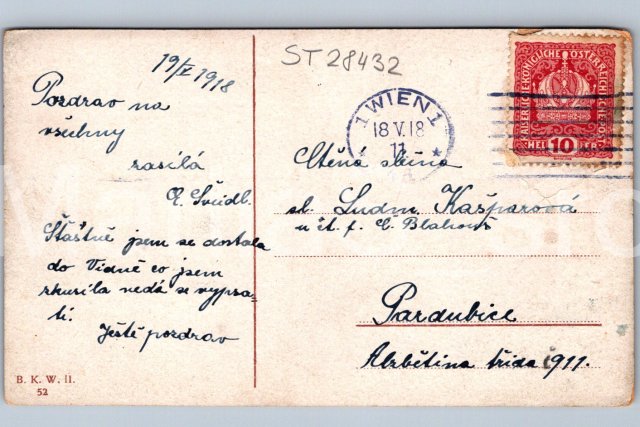 19/V 1918
Pozdrav na
všechny
zasílá
Šveidl.
Štăstně jsem se dostala
do Vídně co jsem
zkusila nedá se vypsa-
ti.
Ještě pozdrav
B. K. W. II.
52
ST 28432
1 WIEN 1
18 V. 18
11
KAISERLICHE KÖNIGLICHE ÖSTERREICHISCHE POST
HELLER 10
Ctěná slečna
sl. Ludm. Kašparová
u ct. f. C. Blahout
Pardubice
Alžbětina třída 911.